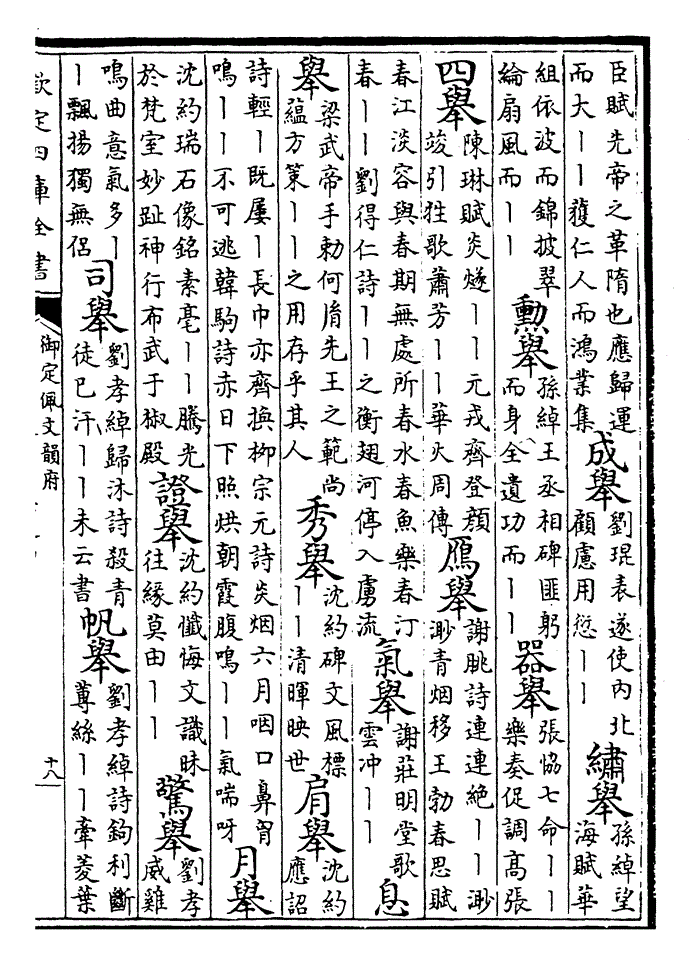 臣賦先帝之革隋也應歸運
而大丨丨獲仁人而鴻業集
成舉
劉琨表遂使內北
顧慮用愆丨丨
繡舉
孫綽望
海賦華
組依波而錦披翠
綸扇風而丨丨
勲舉
孫綽王丞相碑匪躬
而身全遺功而丨丨
器舉
張協七命丨丨
樂奏促調高張
四舉
陳琳賦炎燧丨丨元戎齊登顔
竣引牲歌蕭芳丨丨華火周傳
鴈舉
謝朓詩連連絶丨丨渺
渺青烟移王勃春思賦
春江淡容與春期無處所春水春魚樂春汀
春丨丨劉得仁詩丨丨之衡翅河停入虜流
氣舉
謝莊明堂歌
雲冲丨丨
息
舉
梁武帝手勅何胤先王之範尚
蘊方策丨丨之用存乎其人
秀舉
沈約碑文風標
丨丨清暉映世
肩舉
沈約
應詔
詩輕丨既屢丨長巾亦齊換柳宗元詩炎烟六月咽口鼻胷
鳴丨丨不可逃韓駒詩赤日下照烘朝霞腹鳴丨丨氣喘呀
月舉
沈約瑞石像銘素毫丨丨騰光
於梵室妙趾神行布武于椒殿
證舉
沈約懺悔文識昧
往緣莫由丨丨
驚舉
劉孝
威雞
鳴曲意氣多丨
丨飄揚獨無侶
司舉
劉孝綽歸沐詩殺青
徒已汗丨丨未云書
帆舉
劉孝綽詩鉤利斷
蓴絲丨丨牽菱葉
欽定四庫全書
御定佩文韻府
十八